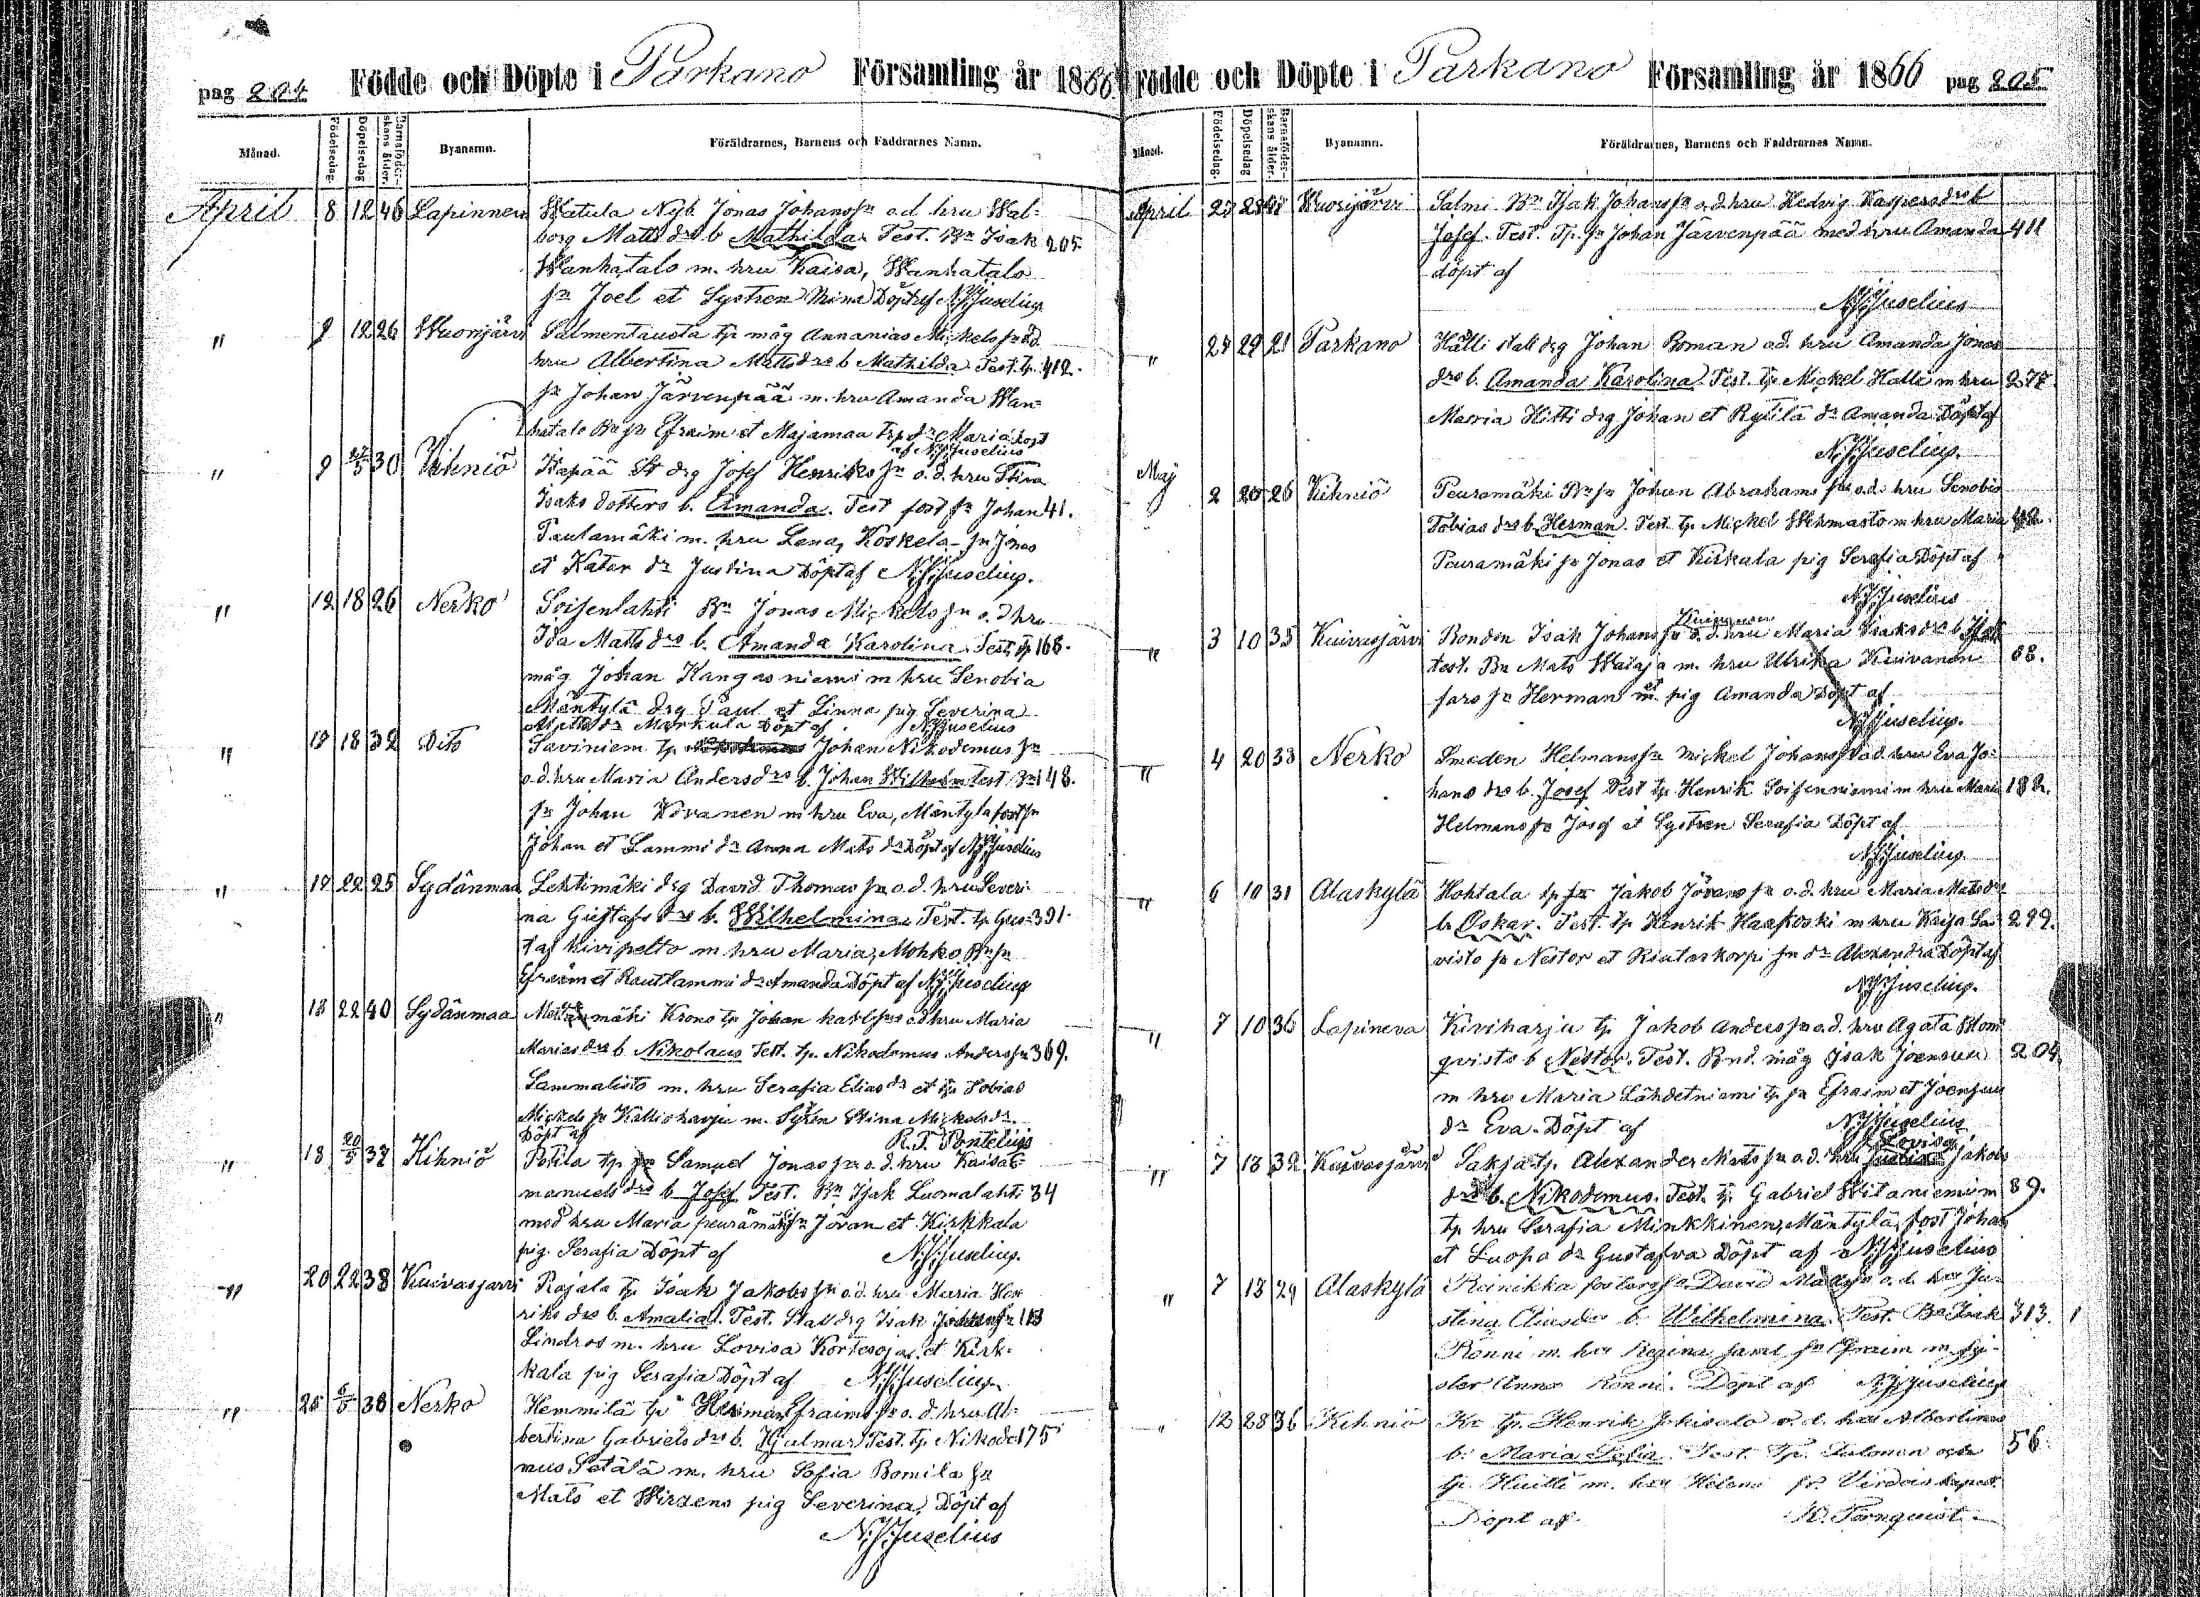 pag 204 Födde och Döpte i Parkano Församling år 1866
Månad. Födelsedag. Döpelsedag Barnaföder-skans ålder. Byanamn. Föräldrarnes, Barnens och Faddrarnes Namn.
April 8 12 46 Lapinneva Watula Nyb. Jonas Johansſn o.d. hru Wal-
borg Matts drs b. Mathilda. Test. Bn Isak 205
Wanhatalo m. hru Kaisa, Wanhatalo
ſn Joel et Systren Mina Döpt af N.J. Juselius
" 9 12 26 Wuorijärvi Salmentausta tp. måg Annanias Mickelsſn o.d.
hru Albertina Matts drs b. Mathilda Test. tp. 412.
ſn Johan Järvenpää m. hru Amanda Wan-
hatalo Bn ſn Efraim et Majamaa trp dr Maria Döpt
af N.J. Juselius
" 9 27/5 30 Kihniö drg Josef Henriksſn o.d. hru Stina
Isaks dotters b. Amanda. Test fost ſn Johan 41.
Paulamäki m. hru Lena, Koskela ſn Jonas
et Katar dr Justina Döpt af N.J. Juselius.
" 12 18 26 Nerko Soisenlahti Bn Jonas Mickelsſn o.d. hru
Ida Matts drs b. Amanda Karolina. Test. tp 168.
måg Johan Kangasniemi m hru Senobia
Mäntylä drg Paul et Linna pig Severina
Matts dr Markula Döpt af N.J. Juselius
" 18 32 Dito Saviniem tp Johan Nikodemus ſn
o.d. hru Maria Anders drs b. Johan Wilhelm Test. Bn 148.
ſn Johan Kovanen m hru Eva, Mäntylä fost ſn
Johan et Lammi dr Anna Mats dr Döpt af N.J. Juselius
" 22 25 Sydänmaa Lehtimäki drg David Thomas ſn o.d. hru Severi-
na Gustafs drs b. Wilhelmina Test. tp Gus- 391.
taf Kivipelto m hru Maria, Mohko Bn ſn
Efraim et Rautlammi dr Amanda Döpt af N.J. Juselius
" 18 22 40 Sydänmaa mäki Krono tp Johan Karlsſns o.d. hru Maria
Marias drs b. Nikolaus Test. tp. Nikodemus Andersſn 369.
Sammalisto m. hru Serafia Elias dr et tp Tobias
Mickels ſn Kalliokarju m. Sÿren Stina Mickels dr.
Döpt af R.T. Pontelius
" 18 20/5 37 Kihniö Potila tp Samuel Jonasſn o.d. hru Kaisa E-
manuels drs b. Josef Test. Bn Isak Luomalahti 34
med hru Maria peurämäki ſn Jövan et Kirkkala
pig. Serafia Döpt af N.J. Juselius.
" 20 22 38 Kuivasjarvi Rajala tp. Isak Jakobs ſn o.d. hru Maria Hen
riks drs b. Amalia. Test. Stat drg Isak
Lindros m. hru Lovisa Kortesoja et Kirk-
kala pig Serafia Döpt af N.J. Juselius
" 25 6/5 38 Nerko Hemmilä tp Herman Efraims ſn o.d. hru Al-
bertina Gabriels drs b. Hjalmar Test. tp. Nikode- 175
mus Setälä m. hru Sofia Bomila ſn
Mats et Wirzens pig Severina. Döpt af
N.J. Juselius
Födde och Döpte i Parkano Församling år 1866 pag 205
Månad. Födelsedag. Döpelsedag Barnaföder-skans ålder. Byanamn. Föräldrarnes, Barnens och Faddrarnes Namn.
April 27 Wuorijärvi Salmi Bn Isak Johansſn o.d. hru Hedvig Kaspers drs b
Josef. Test. Tp. ſn Johan Järvenpää med hru Amanda 411
döpt af
N.J. Juselius
" 29 21 Parkano Hälli stat drg Johan Roman o.d. hru Amanda Jonas
drs b. Amanda Karolina. Test. tp. Mickel Halli m hru 277
Maria Hitti drg Johan et Rytilä dr Amanda Döpt af
N.J. Juselius.
Maj 2 20 26 Kihniö Peuramäki Bn ſn Johan Abrahams ſns o.d. hru Senobia
Tobias drs b. Herman. Test. tp. Mickel Wehmasto m hru Maria 42.
Peuramäki ſn Jonas et Kirkala pig Serafia Döpt af
N.J. Juselius
" 3 10 35 Kuivasjärvi Bonden Isak Johansſn o.d. hru Kuivanen Maria Isaks drs b.
test. Bn Mats Wataja m. hru Ulrika Kuivanen 88.
fars ſn Herman et pig Amanda Döpt af
N.J. Juselius.
" 4 20 33 Nerko Smeden Helmans ſn Mickel Johansſn o.d. hru Eva Jo-
hans drs b. Josef Test tp. Henrik Soisenniemi m hru Maria 182.
Helmans ſn Josef et Systren Serafia Döpt af
N.J. Juselius.
" 6 10 31 Alaskylä Hohtala tp Jakob Jövans ſn o.d. hru Maria Mats drs
b. Oskar. Test. tp Henrik Haaposki m hru Kaisa Sa- 299.
visto ſn Nestor et Rautaskorpi ſn dr Alexandra Döpt af
N.J. Juselius.
" 7 10 36 Lapineva Kiviharju tp Jakob Anders ſn o.d. hru Agata Blom
qvists b Nestor. Test. Bnd. måg Isak Joensuu 204.
m hru Maria Lähdetniemi tp ſn Efraim et Joensuu
dr Eva. Döpt af N.J. Juselius
" 7 13 32 Kuivasjärvi Sakja tp. Alexander Mats ſn o.d. hru Lovisa Jakobs
drs b. Nikodemus. Test. tp. Gabriel Witaniemi m 89.
tp hru Serafia Minkkinen, Mäntylä fost Johan
et Luopa dr Gustafva Döpt af N.J. Juselius
" 7 13 29 Alaskylä Reinikka David o.d. hru Ju-
stina b. Wilhelmina. Test. Bn Isak 313. 1
Rönni m. hru Regina ſn Efraim m. sy-
ster Anna Rönni. Döpt af N.J. Juselius
" 12 28 36 Kihniö Kr. tp. Henrik Jokisalo o.d. hru Albertinas
b. Maria Sofia. Test. Tp. Salomon 56.
tp. m. hru Helena
Döpt af K. Törnquist.